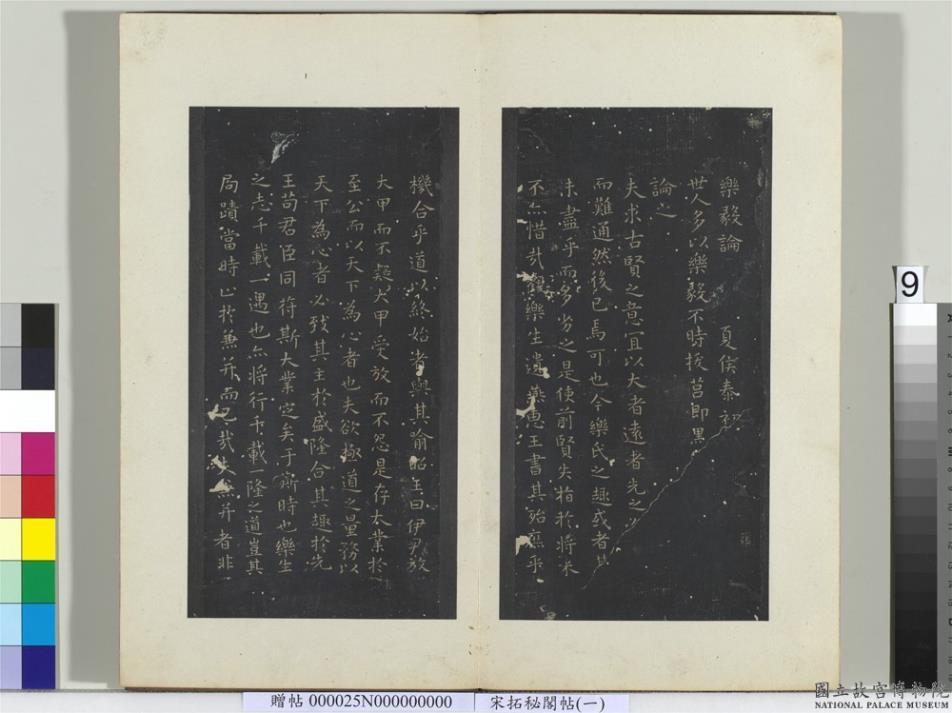 樂毅論 夏侯泰初
世人多以樂毅不時拔莒即墨
論之
夫求古賢之意宜以大者遠者先之必
而難通然後已焉可也今樂氏之趣或者其
未盡乎而多劣之是使前賢失指於將來
不亦惜哉觀樂生遺燕惠王書其殆庶乎
機合乎道以終始者與其喻昭王曰伊尹放
大甲而不疑大甲受放而不怨是存大業於
至公而以天下為心者也夫欲極道之量務以
天下為心者必致其主於盛隆合其趣於先
王苟君臣同符斯大業定矣于斯時也樂生
之志千載一遇也亦將行千載一隆之道豈其
局蹟當時止於兼并而已哉夫兼并者非
9
贈帖 000025N000000000
宋拓秘閣帖(一)
國立故宮博物院
NATIONAL PALACE MUSEUM